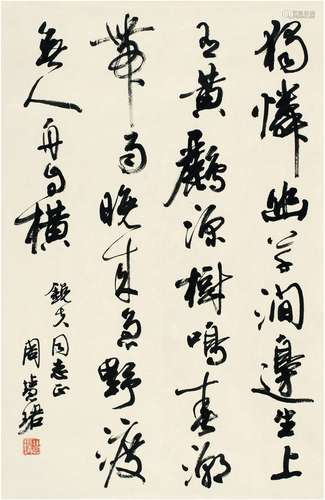 獨憐幽草澗邊生上
有黃鸝深樹鳴春潮
帶雨晚来急野渡
無人舟自橫
同志正
周慧珺